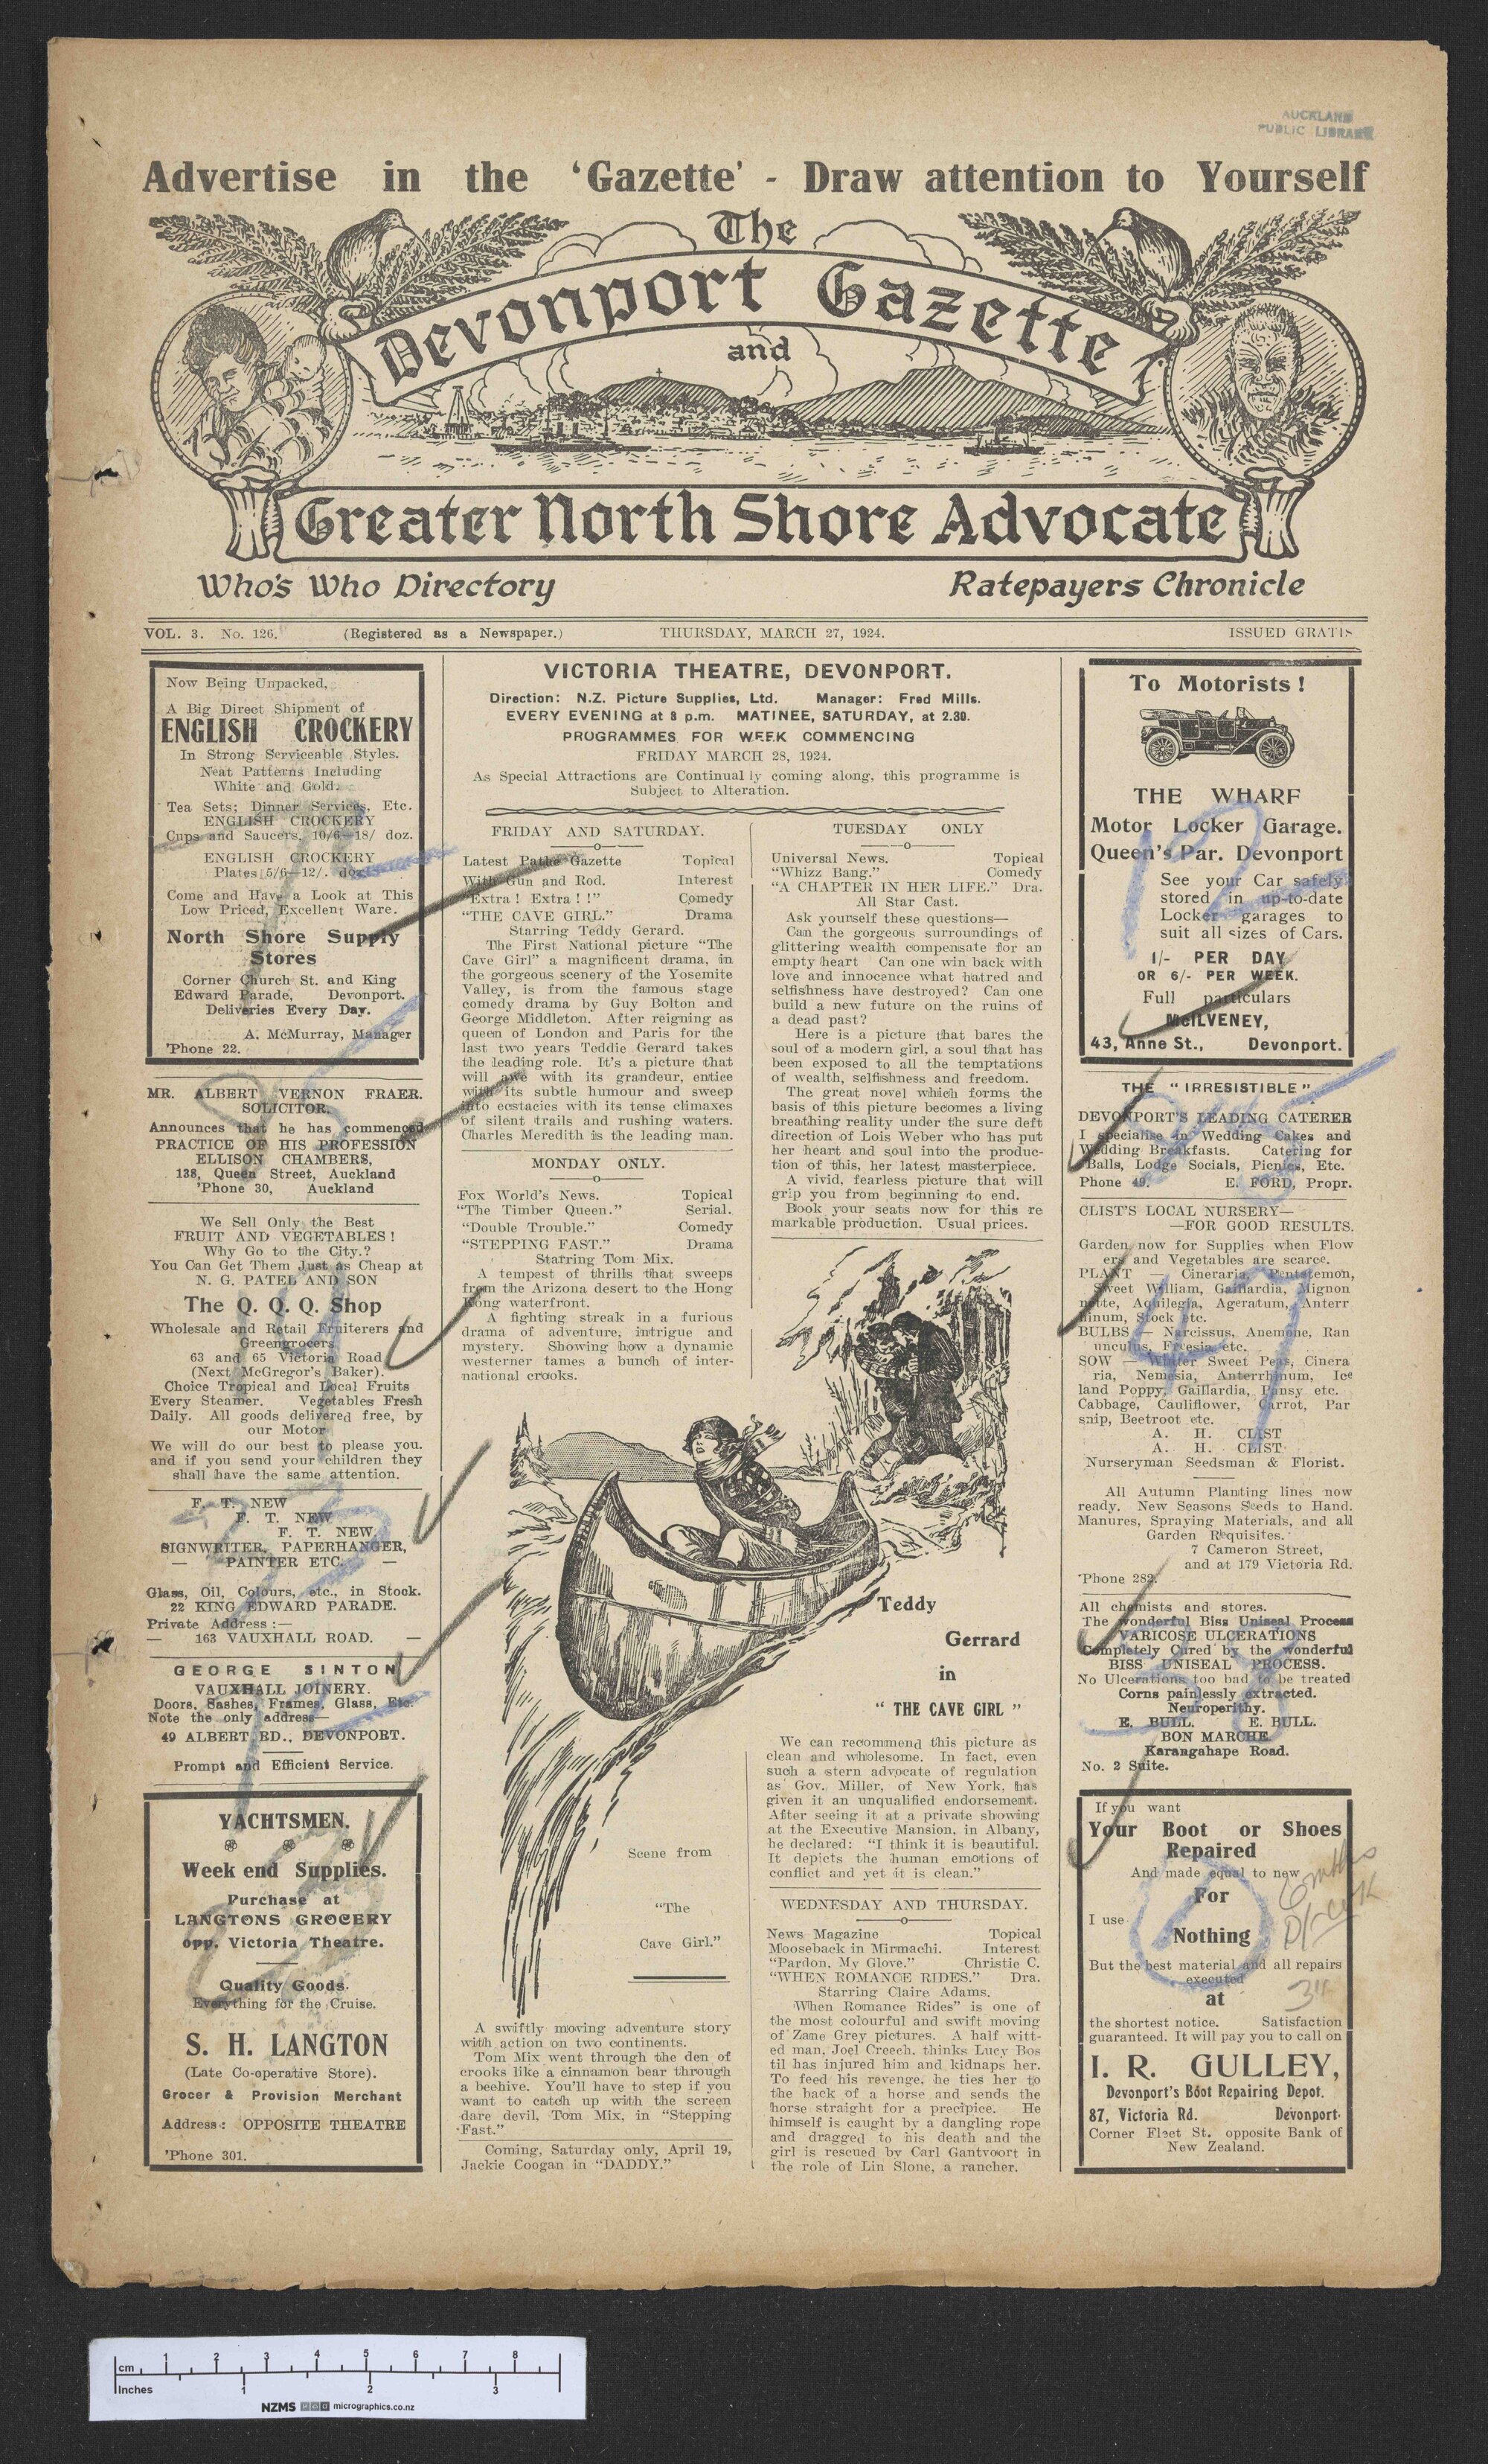 AUCKLAND
PUBLIC LIBRARY
Advertise in the 'Gazette' - Draw attention to Yourself
The
Devonport Gazette
and
Greater North Shore Advocate
Who's Who Directory
Ratepayers Chronicle
VOL. 3. No. 126. (Registered as a Newspaper.) THURSDAY, MARCH 27, 1924. ISSUED GRATIS
Now Being Unpacked,
A Big Direct Shipment of
ENGLISH CROCKERY
In Strong Serviceable Styles.
Neat Patterns Including
White and Gold.
Tea Sets; Dinner Services. Etc.
ENGLISH CROCKERY
Cups and Saucers, 10/6—18/ doz.
ENGLISH CROCKERY
Plates 5/6—12/. doz.
Come and Have a Look at This
Low Priced, Excellent Ware.
North Shore Supply
Stores
Corner Church St. and King
Edward Parade, Devonport.
Deliveries Every Day.
A. McMurray, Manager
'Phone 22.
MR. ALBERT VERNON FRAER.
SOLICITOR.
Announces that he has commenced
PRACTICE OF HIS PROFESSION
ELLISON CHAMBERS,
138, Queen Street, Auckland
'Phone 30, Auckland
We Sell Only the Best
FRUIT AND VEGETABLES!
Why Go to the City.?
You Can Get Them Just as Cheap at
N. G. PATEL AND SON
The Q. Q. Q. Shop
Wholesale and Retail Fruiterers and
Greengrocers
63 and 65 Victoria Road
(Next McGregor's Baker).
Choice Tropical and Local Fruits
Every Steamer. Vegetables Fresh
Daily. All goods delivered free, by
our Motor
We will do our best to please you.
and if you send your children they
shall have the same attention.
F. T. NEW
F. T. NEW
F. T. NEW
SIGNWRITER, PAPERHANGER,
— PAINTER ETC. —
Glass, Oil, Colours, etc., in Stock.
22 KING EDWARD PARADE.
Private Address :—
— 163 VAUXHALL ROAD. —
GEORGE SINTON
VAUXHALL JOINERY.
Doors, Sashes, Frames, Glass, Etc.
Note the only address—
49 ALBERT RD., DEVONPORT.
Prompt and Efficient Service.
YACHTSMEN.
Week end Supplies.
Purchase at
LANGTONS GROCERY
opp. Victoria Theatre.
Quality Goods.
Everything for the Cruise.
S. H. LANGTON
(Late Co-operative Store).
Grocer & Provision Merchant
Address: OPPOSITE THEATRE
'Phone 301.
VICTORIA THEATRE, DEVONPORT.
Direction: N.Z. Picture Supplies, Ltd. Manager: Fred Mills.
EVERY EVENING at 8 p.m. MATINEE, SATURDAY, at 2.30.
PROGRAMMES FOR WEEK COMMENCING
FRIDAY MARCH 28, 1924.
As Special Attractions are Continual ly coming along, this programme is
Subject to Alteration.
FRIDAY AND SATURDAY.
Latest Pathe Gazette Topical
With Gun and Rod. Interest
"Extra! Extra!!" Comedy
"THE CAVE GIRL." Drama
Starring Teddy Gerard.
The First National picture "The
Cave Girl" a magnificent drama, in
the gorgeous scenery of the Yosemite
Valley, is from the famous stage
comedy drama by Guy Bolton and
George Middleton. After reigning as
queen of London and Paris for the
last two years Teddie Gerard takes
the leading role. It's a picture that
will awe with its grandeur, entice
with its subtle humour and sweep
into ecstacies with its tense climaxes
of silent trails and rushing waters.
Charles Meredith is the leading man.
MONDAY ONLY.
Fox World's News. Topical
"The Timber Queen." Serial.
"Double Trouble." Comedy
"STEPPING FAST." Drama
Starring Tom Mix.
A tempest of thrills that sweeps
from the Arizona desert to the Hong
Kong waterfront.
A fighting streak in a furious
drama of adventure, intrigue and
mystery. Showing how a dynamic
westerner tames a bunch of inter-
national crooks.
Scene from
"The
Cave Girl."
A swiftly moving adventure story
with action on two continents.
Tom Mix went through the den of
crooks like a cinnamon bear through
a beehive. You'll have to step if you
want to catch up with the screen
dare devil, Tom Mix, in "Stepping
Fast."
Coming, Saturday only, April 19,
Jackie Coogan in "DADDY."
TUESDAY ONLY
Universal News. Topical
"Whizz Bang." Comedy
"A CHAPTER IN HER LIFE." Dra.
All Star Cast.
Ask yourself these questions—
Can the gorgeous surroundings of
glittering wealth compensate for an
empty heart Can one win back with
love and innocence what hatred and
selfishness have destroyed? Can one
build a new future on the ruins of
a dead past?
Here is a picture that bares the
soul of a modern girl, a soul that has
been exposed to all the temptations
of wealth, selfishness and freedom.
The great novel which forms the
basis of this picture becomes a living
breathing reality under the sure deft
direction of Lois Weber who has put
her heart and soul into the produc-
tion of this, her latest masterpiece.
A vivid, fearless picture that will
grip you from beginning to end.
Book your seats now for this re
markable production. Usual prices.
Teddy
Gerrard
in
" THE CAVE GIRL "
We can recommend this picture as
clean and wholesome. In fact, even
such a stern advocate of regulation
as Gov. Miller, of New York, has
given it an unqualified endorsement.
After seeing it at a private showing
at the Executive Mansion, in Albany,
he declared: "I think it is beautiful.
It depicts the human emotions of
conflict and yet it is clean."
WEDNESDAY AND THURSDAY.
News Magazine Topical
Mooseback in Mirmachi. Interest
"Pardon, My Glove." Christie C.
"WHEN ROMANCE RIDES." Dra.
Starring Claire Adams.
'When Romance Rides" is one of
the most colourful and swift moving
of Zame Grey pictures. A half witt-
ed man, Joel Creech, thinks Lucy Bos
til has injured him and kidnaps her.
To feed his revenge, he ties her to
the back of a horse and sends the
horse straight for a precipice. He
himself is caught by a dangling rope
and dragged to his death and the
girl is rescued by Carl Gantvoort in
the role of Lin Slone, a rancher.
To Motorists!
THE WHARF
Motor Locker Garage.
Queen's Par. Devonport
See your Car safely
stored in up-to-date
Locker garages to
suit all sizes of Cars.
1/- PER DAY
OR 6/- PER WEEK.
Full particulars
McILVENEY,
43, Anne St., Devonport.
12
THE "IRRESISTIBLE"
DEVONPORT'S LEADING CATERER
I specialise in Wedding Cakes and
Wedding Breakfasts. Catering for
Balls, Lodge Socials, Picnics, Etc.
Phone 49. E. FORD, Propr.
CLIST'S LOCAL NURSERY—
—FOR GOOD RESULTS.
Garden now for Supplies when Flow
ers and Vegetables are scarce.
PLANT — Cineraria, Pentstemon,
Sweet William, Gaillardia, Mignon
nette, Aquilegia, Ageratum, Anterr
hinum, Stock etc.
BULBS — Narcissus, Anemone, Ran
unculus, Freesia etc.
SOW — Winter Sweet Peas, Cinera
ria, Nemesia, Anterrhinum, Ice
land Poppy, Gaillardia, Pansy etc.
Cabbage, Cauliflower, Carrot, Par
snip, Beetroot etc.
A. H. CLIST
A. H. CLIST
Nurseryman Seedsman & Florist.
All Autumn Planting lines now
ready. New Seasons Seeds to Hand.
Manures, Spraying Materials, and all
Garden Requisites.
7 Cameron Street,
and at 179 Victoria Rd.
'Phone 282.
All chemists and stores.
The wonderful Biss Uniseal Process
VARICOSE ULCERATIONS
Completely Cured by the wonderful
BISS UNISEAL PROCESS.
No Ulcerations too bad to be treated
Corns painlessly extracted.
Neuroperithy.
E. BULL. E. BULL.
BON MARCHE.
Karangahape Road.
No. 2 Suite.
If you want
Your Boot or Shoes
Repaired
And made equal to new
For
I use
Nothing
But the best material and all repairs
executed
at
3"
the shortest notice. Satisfaction
guaranteed. It will pay you to call on
I. R. GULLEY,
Devonport's Boot Repairing Depot.
87, Victoria Rd. Devonport.
Corner Fleet St. opposite Bank of
New Zealand.
cm 1 2 3 4 5 6 7 8
Inches 1 2 3
NZMS micrographics.co.nz